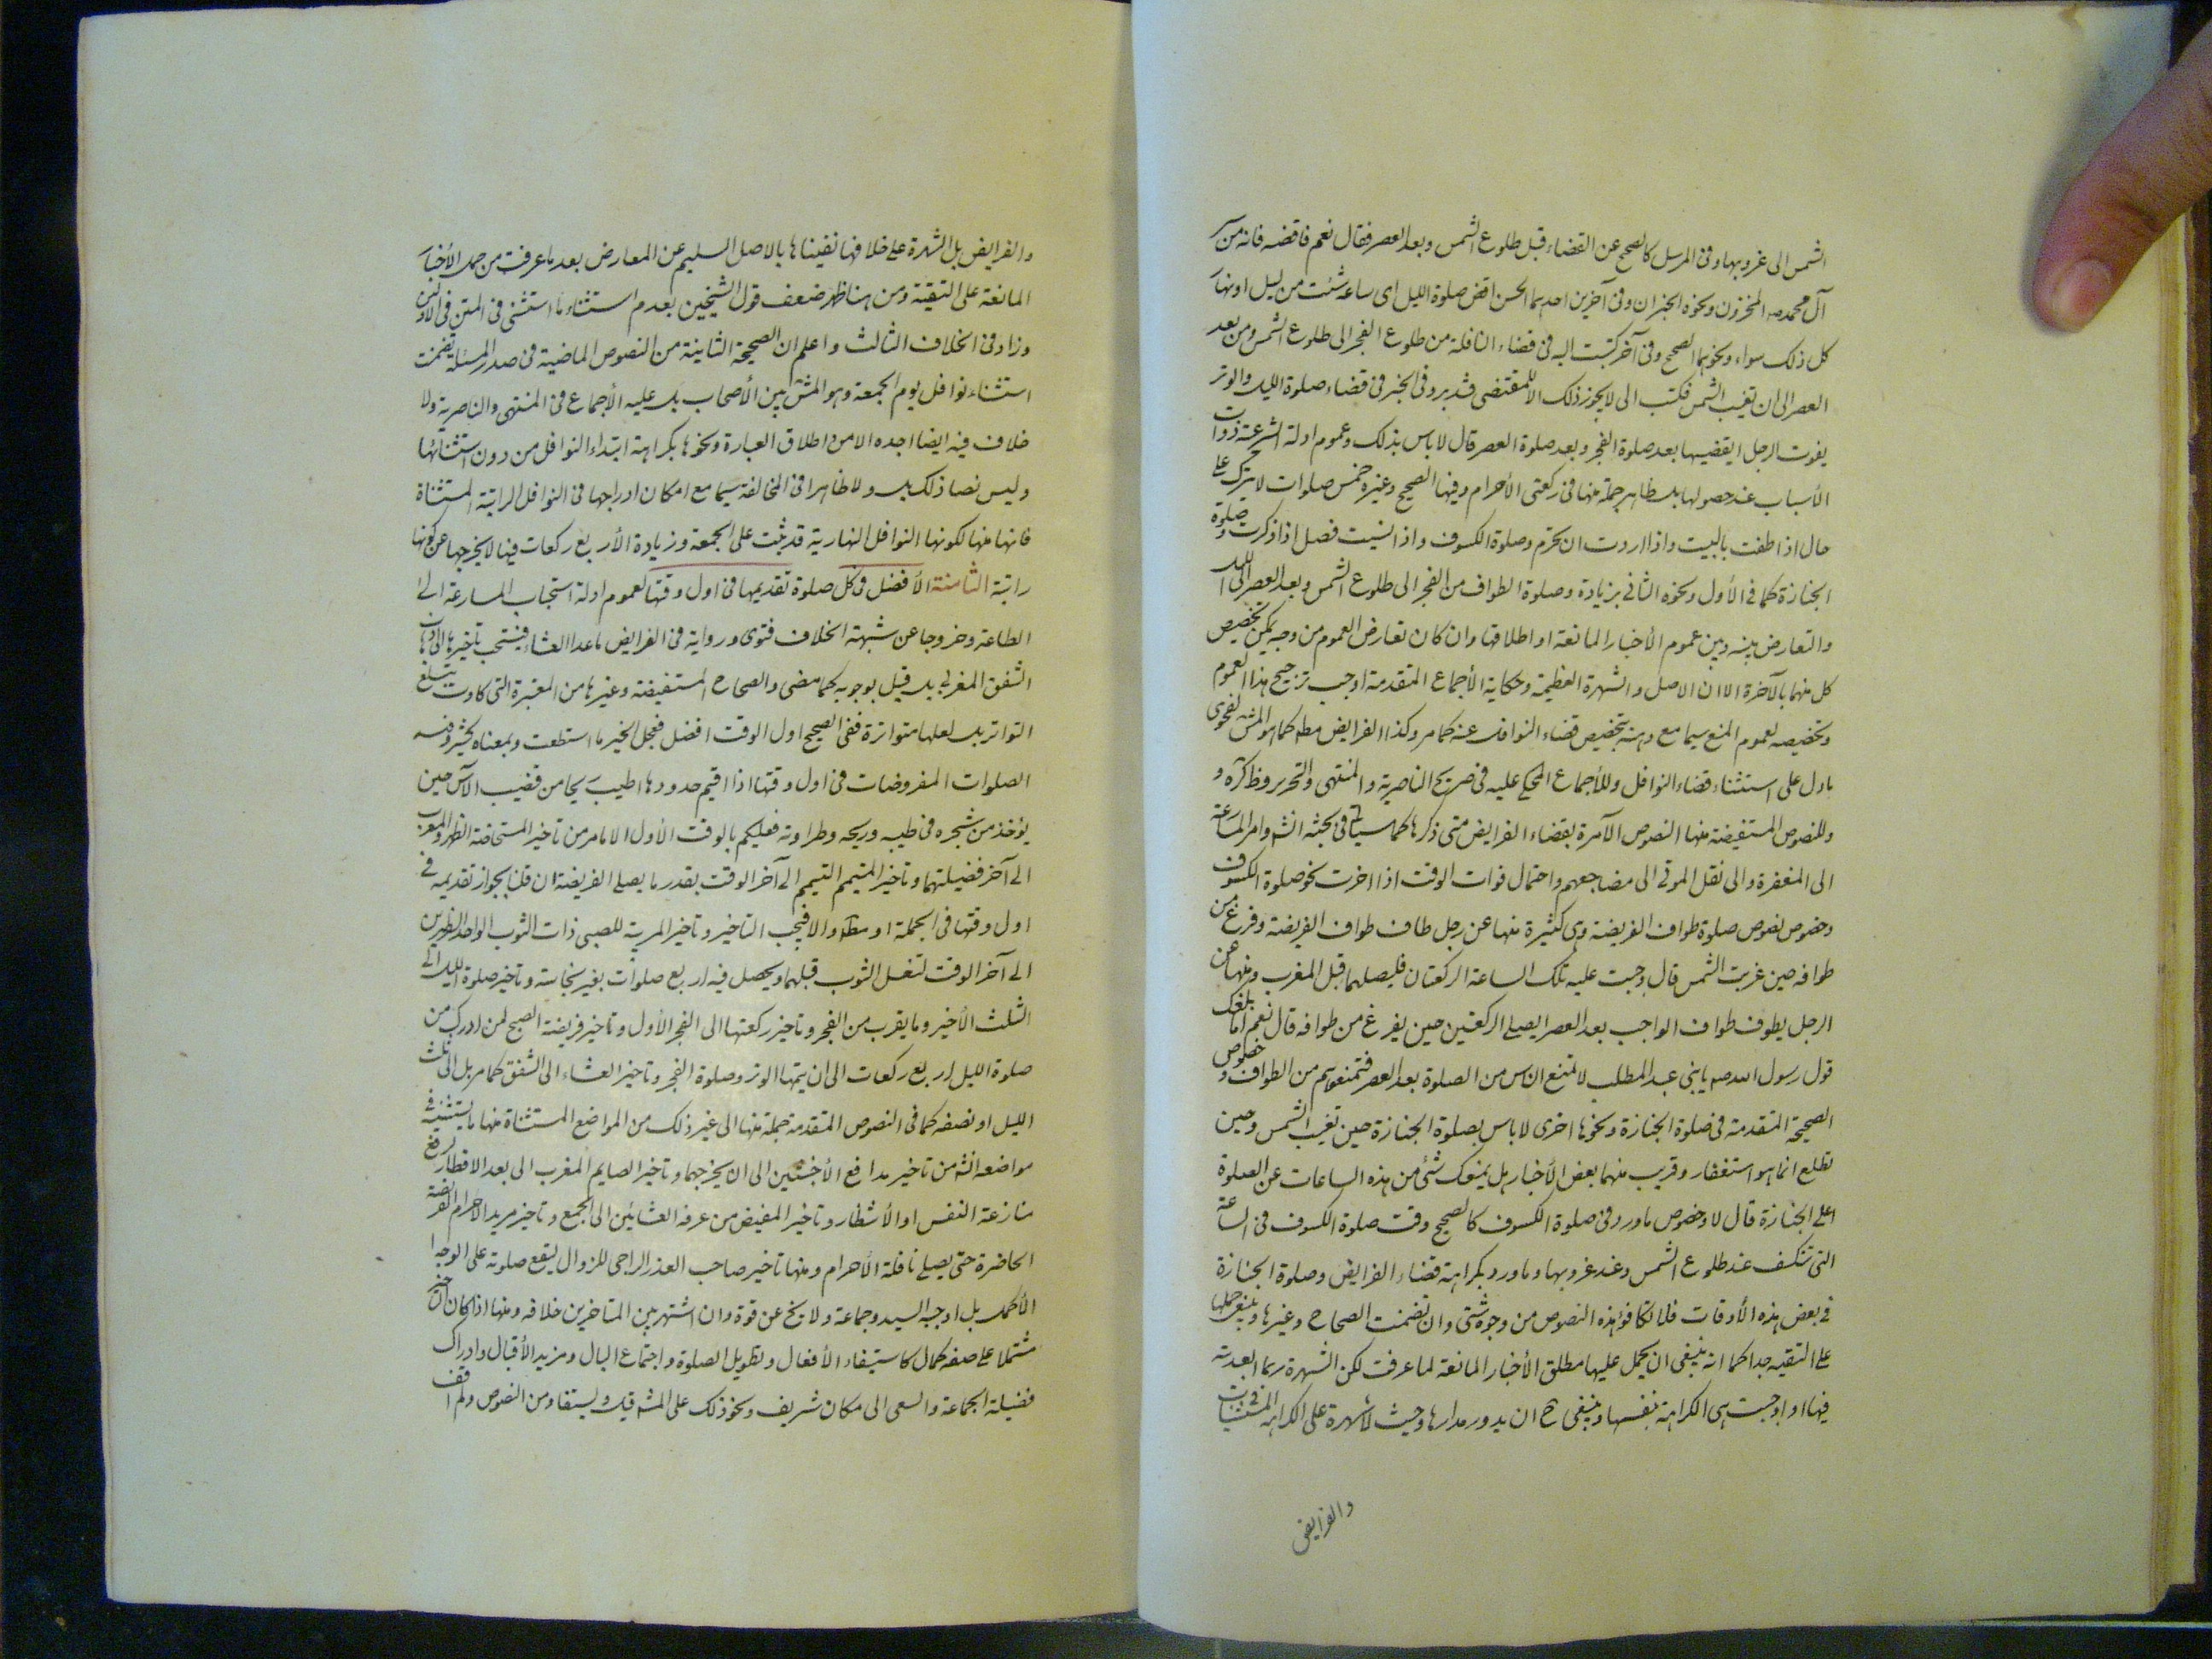 الشمس الى غروبها وفى المرسل كالصحيح عن القضاء قبل طلوع الشمس وبعد العصر فقال نعم فاقضه فانه من سر
آل محمد صه المخزون ونحوه الخبران وفى آخرين احدهما الحسن اقض صلوة الليل اى ساعة شئت من ليل او نهار
كل ذلك سواء ونحوهما الصحيح وفى آخر كتبت اليه فى قضاء النافلة من طلوع الفجر الى طلوع الشمس ومن بعد
العصر الى ان تغيب الشمس فكتب الى لا يجوز ذلك الا للمقتضى فتدبر وفى الخبر فى قضاء صلوة الليل والوتر
يفوت الرجل ايقضيها بعد صلوة الفجر وبعد صلوة العصر قال لا باس بذلك وعموم ادلة شرعية ذوات
الأسباب عند حصولها بل ظاهر جملة منها فى ركعتى الأحرام وفيها الصحيح وغيره خمس صلوات لا يترك على
حال اذا طفت بالبيت واذا اردت ان تحرم وصلوة الكسوف واذا نسيت فصل اذا ذكرت وصلوة
الجنازة كما فى الأول ونحوه الثانى بزيادة وصلوة الطواف من الفجر الى طلوع الشمس وبعد العصر الى الليل
والتعارض بينه وبين عموم الأخبار المانعة او اطلاقها وان كان تعارض العموم من وجه يمكن تخصيص
كل منهما بالآخرة الا ان الاصل والشهرة العظيمة وحكاية الأجماع المتقدمة اوجب ترجيح هذا العموم
وتخصيصه لعموم المنع سيما مع وهنه بتخصيص قضاء النوافل عنه كما مر وكذا الفرايض مطه كما هو المش لفحوى
مادل على استثناء قضاء النوافل وللأجماع المحكى عليه فى صريح الناصرية والمنتهى والتحرير وظ كره و
وللنصوص المستفيضة منها النصوص الآمرة بقضاء الفرايض متى ذكرها كما سياتى فى بحثه انشه وامر المسارعة
الى المغفرة والى نقل الموتى الى مضاجعهم واحتمال فوات الوقت اذا اخرت نحو صلوة الكسوف
وخصوص نصوص صلوة طواف الفريضة وهى كثيرة منها عن رجل طاف طواف الفريضة وفرغ من
طوافه حين غربت الشمس قال وجبت عليه تلك الساعة الركعتان فليصلهما قبل المغرب ومنها عن
الرجل يطوف طواف الواجب بعد العصر ايصلى الركعتين حين يفرغ من طوافه قال نعم اما بلغك
قول رسول الله صه يا بنى عبد المطلب لا تمنع الناس من الصلوة بعد العصر فتمنعوهم من الطواف وخصوص
الصحيحة المتقدمة فى صلوة الجنازة ونحوها اخرى لا باس بصلوة الجنازة حين تغيب الشمس وحين
تطلع انما هو استغفار وقريب منهما بعض الأخبار هل يمنعك شئ من هذه الساعات عن الصلوة
على الجنازة قال لا وخصوص ما ورد فى صلوة الكسوف كالصحيح وقت صلوة الكسوف فى الساعة
التى تنكسف عند طلوع الشمس وعند غروبها وما ورد بكراهة قضاء الفرايض وصلوة الجنازة
فى بعض هذه الأوقات فلا تكافؤ هذه النصوص من وجوه شتى وان تضمنت الصحاح وغيرها وينبغى حملها
على التقيه جدا كما انه ينبغى ان يحمل عليها مطلق الأخبار المانعة لما عرفت لكن الشهرة ربما ابعدته
فيها او اوجبت هى الكراهة بنفسها وينبغى ح ان يدور مدارها وحيث لا شهرة على الكراهة فى المستثنيات
والفرايض
والفرايض بل الشهرة على خلافها نفيناها بالاصل السليم عن المعارض بعد ما عرفت من حمل الأخبار
المانعة على التقية ومن هنا ظهر ضعف قول الشيخين بعدم استثناء ما استثنى فى المتن فى الاولين
وزاد فى الخلاف الثالث واعلم ان الصحيحة الثانية من النصوص الماضية فى صدر المسئلة تضمنت
استثناء نوافل يوم الجمعة وهو المش بين الأصحاب بل عليه الأجماع فى المنتهى والناصرية ولا
خلاف فيه ايضا اجده الا من اطلاق العبارة ونحوها بكراهة ابتداء النوافل من دون استثنائها
وليس نصا ذلك بل ولا ظاهرا فى المخالفة سيما مع امكان ادراجها فى النوافل الراتبة المستثناة
فانها منها لكونها النوافل النهارية قد ثبت على الجمعة وزيادة الأربع ركعات فيها لا يخرجها عن كونها
راتبة الثامنة الأفضل فى كل صلوة تقديمها فى اول وقتها لعموم ادلة استحباب المسارعة الى
الطاعة وخروجا عن شبهة الخلاف فتوى ورواية فى الفرايض ما عدا العشاء فيستحب تاخيرها الى ذهاب
الشفق المغربى بل قيل بوجوبه كما مضى والصحاح المستفيضة وغيرها من المعتبرة التى كادت تبلغ
التواتر بل لعلها متواترة ففى الصحيح اول الوقت افضل فعجل الخير ما استطعت وبمعناه كثير وفضه
الصلوات المفروضات فى اول وقتها اذا اقيم حدودها اطيب ريحا من قضيب الآس حين
يؤخذ من شجره فى طيبه وريحه وطراوته فعليكم بالوقت الأول الا ما مر من تاخير المستحاضة الظهر والمغرب
الى آخر فضيلتهما وتاخير المتيمم التيمم الى آخر الوقت بقدر ما يصلى الفريضة ان قلنا بجواز تقديمه فى
اول وقتها فى الجملة او مطه والا فيجب التاخير وتاخير المربية للصبى ذات الثوب الواحد الظهرين
الى آخر الوقت لتغسل الثوب قبلهما ويحصل فيه اربع صلوات بغير نجاسة وتاخير صلوة الليل الى
الثلث الأخير وما يقرب من الفجر وتاخير ركعتها الى الفجر الأول وتاخير فريضة الصبح لمن ادرك من
صلوة الليل اربع ركعات الى ان يتمها الوتر وصلوة الفجر وتاخير العشاء الى الشفق كما مر بل الى ثلث
الليل او نصفه كما فى النصوص المتقدمة جملة منها الى غير ذلك من المواضع المستثناة منها ما يستثنيه فى
مواضعه انشه من تاخير مدافع الأخبثين الى ان يخرجهما وتاخير الصايم المغرب الى بعد الافطار لرفع
منازعة النفس او الأنتظار وتاخير المفيض من عرفة العشائين الى الجمع وتاخير مريد الاحرام الفريضة
الحاضرة حتى يصلى نافلة الأحرام ومنها تاخير صاحب العذر الراجى للزوال ليقع صلوته على الوجه
الأكمل بل اوجبه السيد وجماعة ولا يخ عن قوة وان اشتهر بين المتاخرين خلافه ومنها اذا كان التاخير
مشتملا على صفة كمال كاستيفاء الأفعال وتطويل الصلوة واجتماع البال ومزيد الأقبال وادراك
فضيلة الجماعة والسعى الى مكان شريف ونحو ذلك على المشه قيل ويستفاد من النصوص ولم اقف